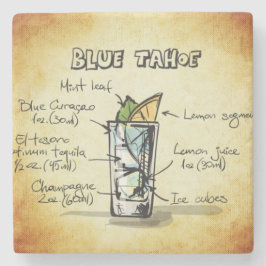 BLUE TAHOE
Mint leaf
Blue Curaçao
1oz. (30ml)
Lemon segmen
El tesoro
tinum tequila
1/2 oz. (45ml)
Lemon juice
1oz (30ml)
Champagne
2oz (60ml)
Ice cubes